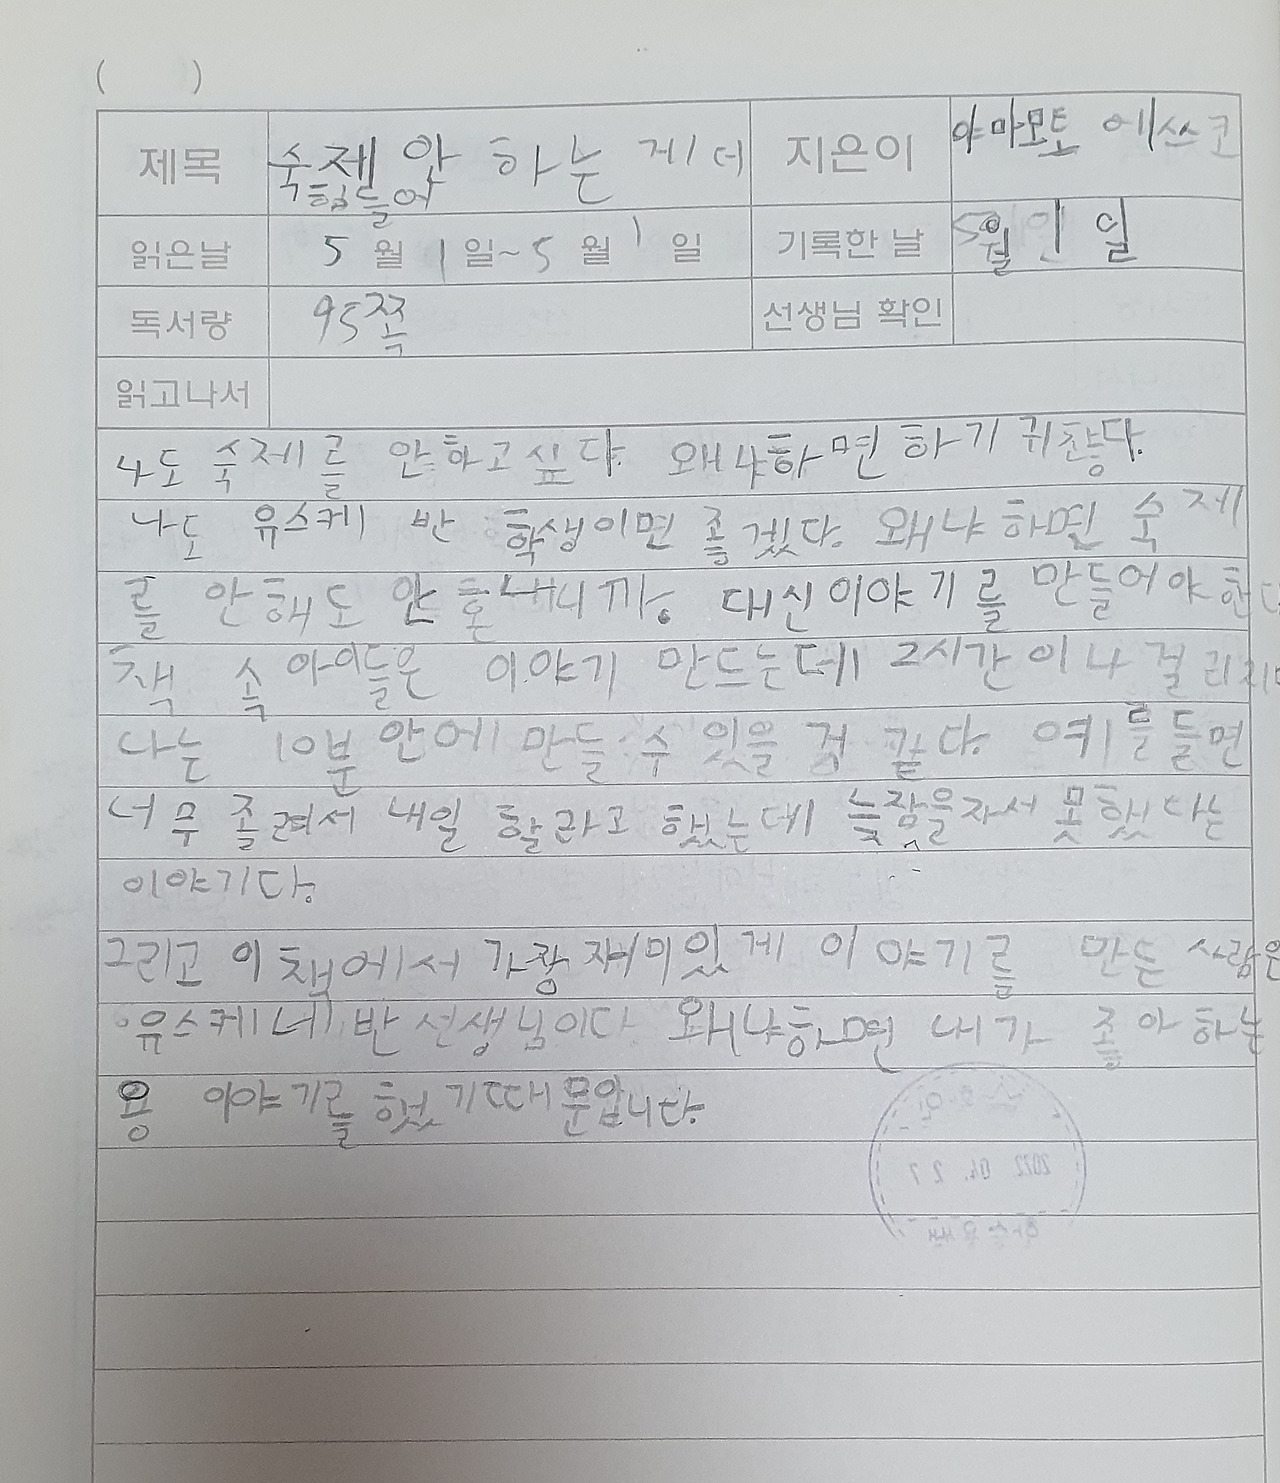 ( )
제목 숙제 안 하는 게 더 힘들어 지은이 야마모토 에쓰코
읽은날 5월 1일~5월 1일 기록한 날 5월 1일
독서량 95쪽 선생님 확인
읽고나서
나도 숙제를 안하고싶다. 왜냐하면 하기 귀찮다.
나도 유스케 반 학생이면 좋겠다. 왜냐하면 숙제
를 안해도 안 혼내니까. 대신 이야기를 만들어야 한다
책 속 아이들은 이야기 만드는데 2시간이나 걸리지만
나는 10분 안에 만들 수 있을 것 같다. 예를들면
너무 졸려서 내일 할라고 했는데 늦잠을자서 못했다는
이야기다.
그리고 이 책에서 가장 재미있게 이야기를 만든 사람은
유스케네 반 선생님이다 왜냐하면 내가 좋아하는
용 이야기를 했기때문입니다.
2022. 04. 27